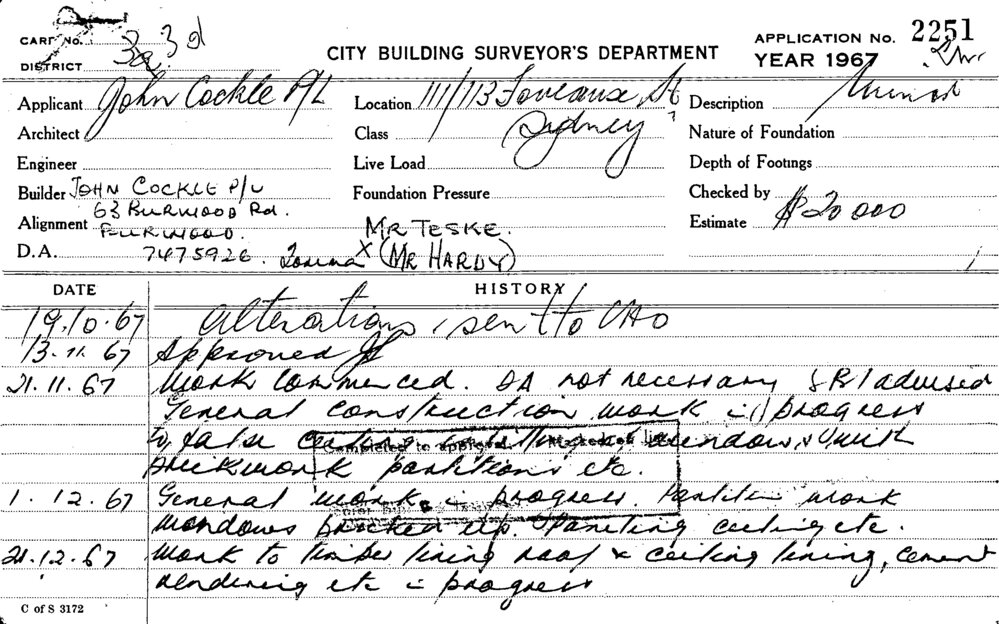 CARD No.
3a 3d
DISTRICT
CITY BUILDING SURVEYOR'S DEPARTMENT
APPLICATION No. 2251
YEAR 1967
Applicant John Cockle P/L
Location 111/113 Foveaux St
Sydney
Description
Architect
Class
Nature of Foundation
Engineer
Live Load
Depth of Footings
Builder JOHN COCKLE P/L
63 BURWOOD Rd.
BURWOOD.
Foundation Pressure
Checked by
Alignment
MR TESKE.
Estimate $20 000
D.A. 7475926.
x (MR HARDY)
DATE HISTORY
19.10.67 Alterations, sent to
13.11.67 Approved
21.11.67 Work commenced. DA not necessary advised
General construction work in progress
to false ceiling windows with
brickwork partitions etc.
Completed to approval
1.12.67 General work in progress. Partition work
windows bricked up. Panelling ceiling etc.
21.12.67 Work to timber lining roof & ceiling lining, cement
rendering etc in progress
C of S 3172